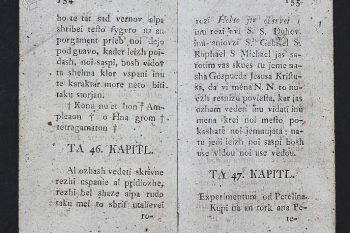 134
ho te tat sad vernov alpa
shribei teſto ſvgreto na su
porgament preſeb noi dejo
pod guavo, kader leizh poi-
dash, noi saspi, bosh vidov
ta shelma klor vspani imu
te karaktar more neto biti
taku storjan.
† Konu nu et hon † Am-
plezaon † o Hna grom †
†etragamaton †
TA 46. KAPITL.
Al ozhash vedeti skrivne
rezhi uspanie al pridiozhe,
rezhi bel shaze alpa rudo
taku mei to shrif utalievei
ro-
133
rezi
imu rezi hvi S. S. Duhov.
S. Gabriel S.
Raphael S Michael jas sa-
rotim vas skues tu jeme na-
sha Gospueda Jesusa Kriſtu-
sa, da vi mena N. N. to nu-
ezh resnizu povieſta, kar jas
ozham vedeti inu vidati inu
mena krei noi meſto po-
kashate noi jemnujata; na-
tu jedi leizh noi saspi bosh
use vidou noi use vedou.
TA 47. KAPITL.
Experimentum od Petelina.
Kupi na en tork ana Pe-
te-